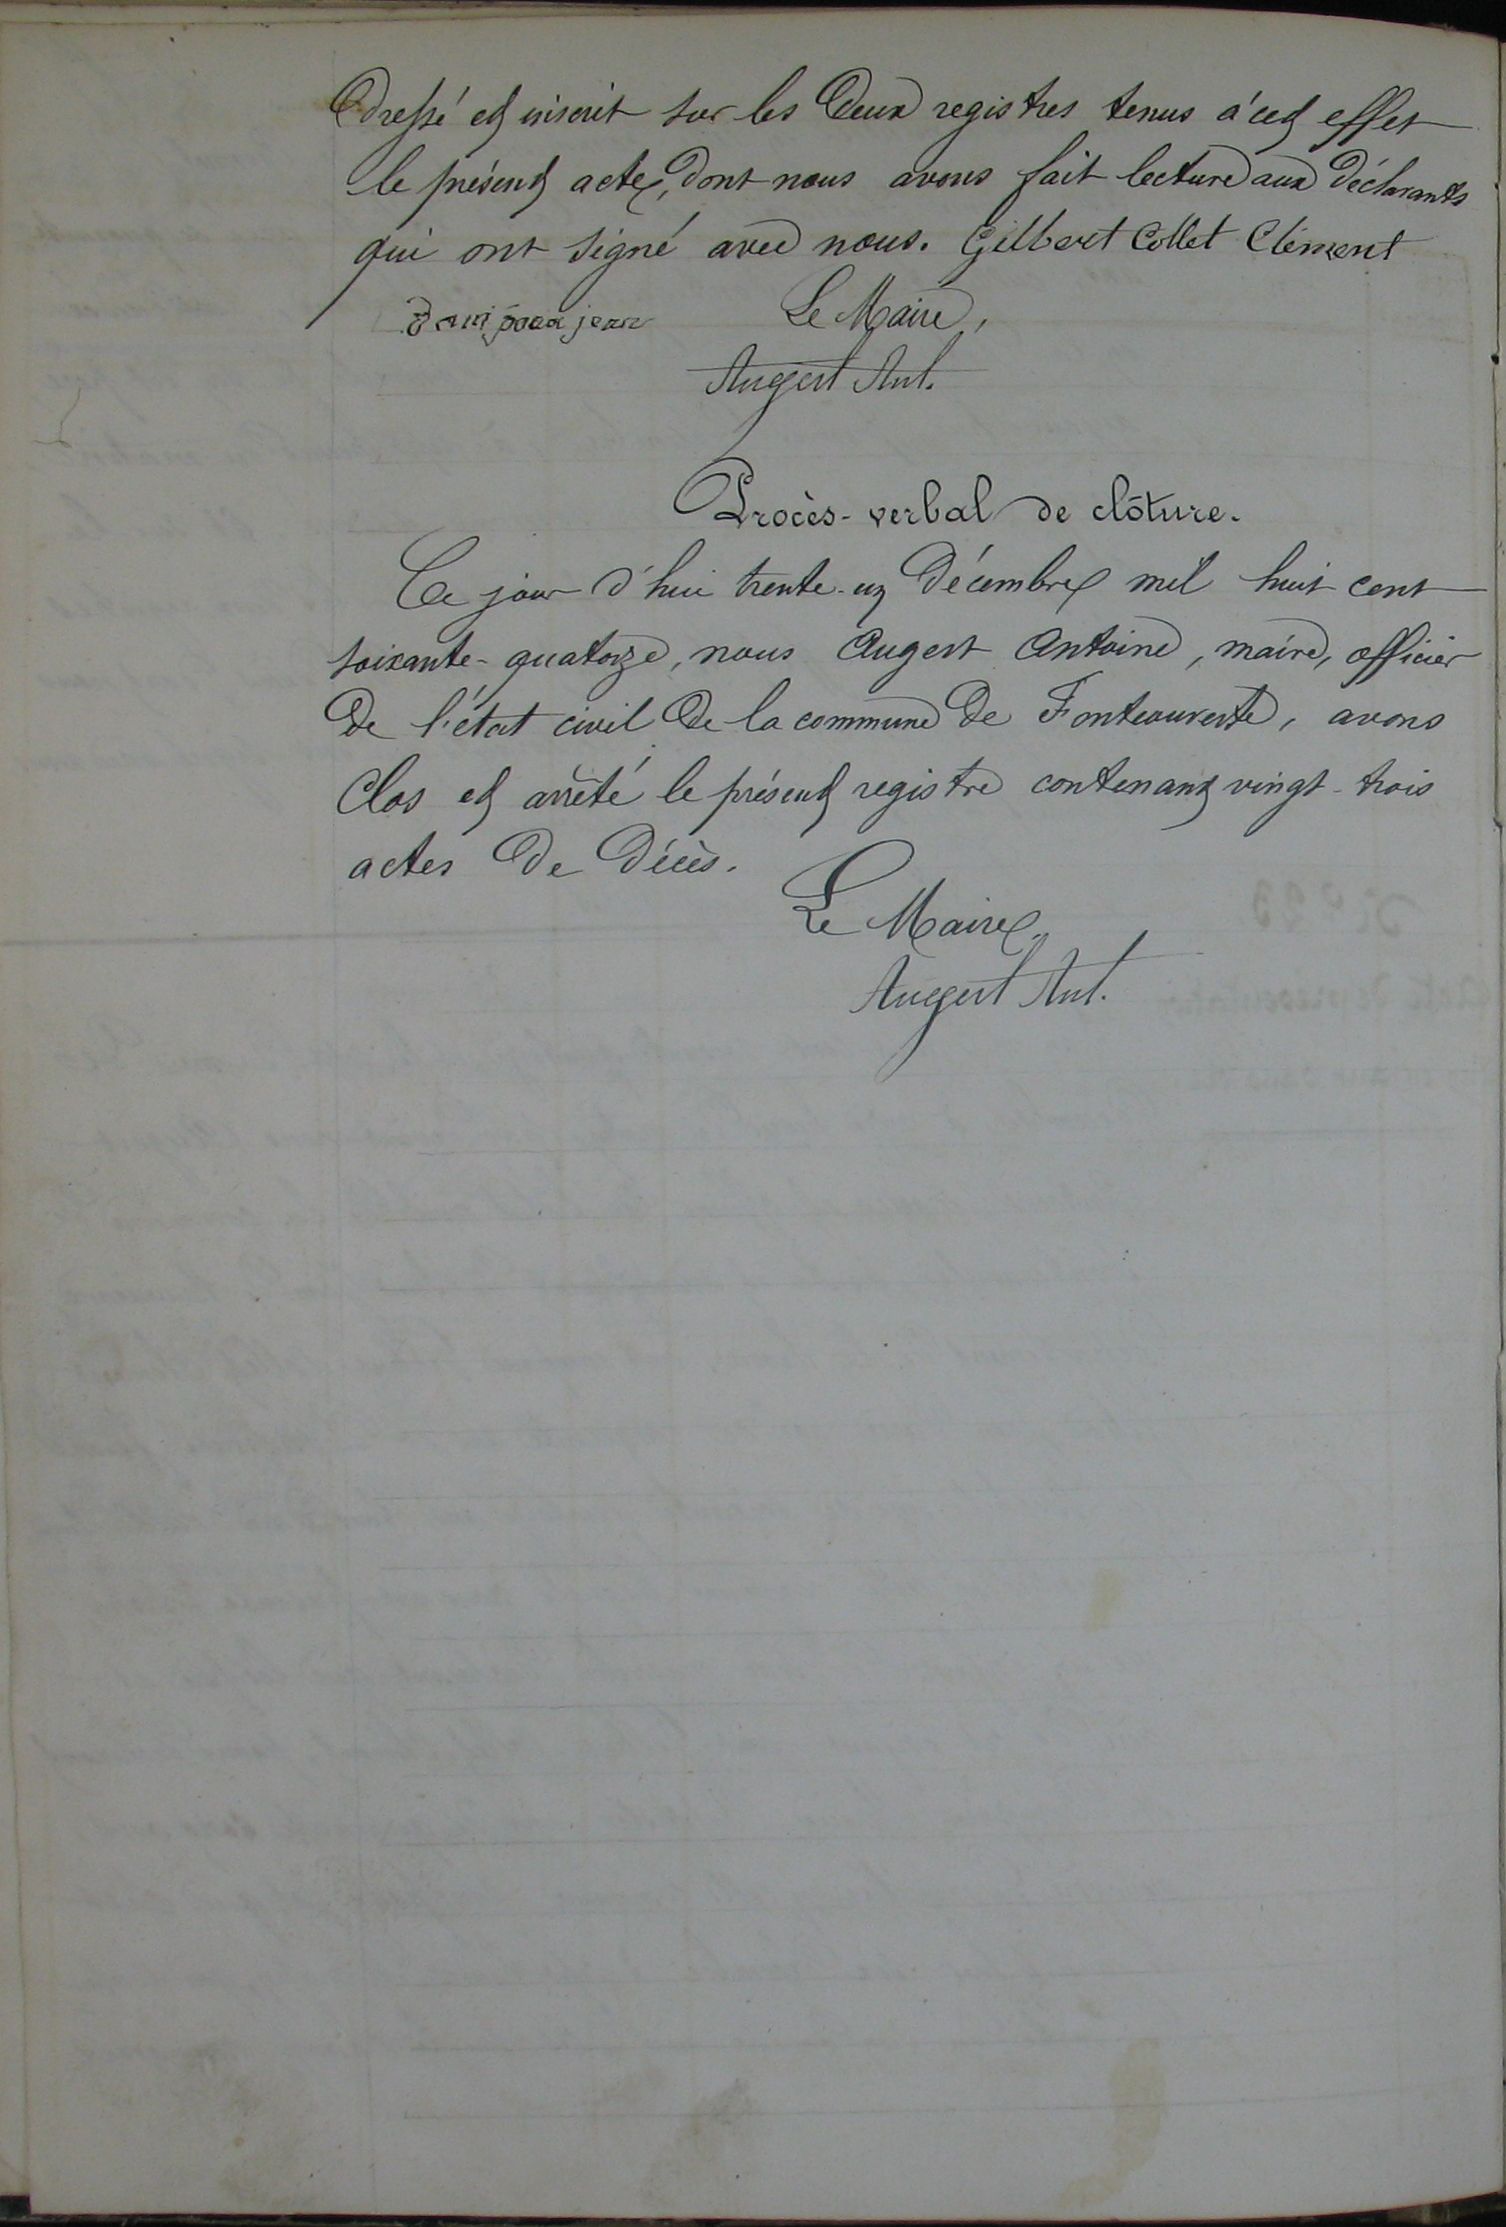 dressé et inscrit sur les deux registres tenus à cet effet
le présent acte, dont nous avons fait lecture aux déclarants
qui ont signé avec nous. Gilbert Collet Clément
jean Le Maire,
Augert Ant.
Procès-verbal de clôture.
Ce jour d'hui trente-un décembre mil huit cent
soixante-quatorze, nous Augert Antoine, maire, officier
de l'état civil de la commune de Fontcouverte, avons
clos et arrêté le présent registre contenant vingt-trois
actes de décès.
Le Maire,
Augert Ant.